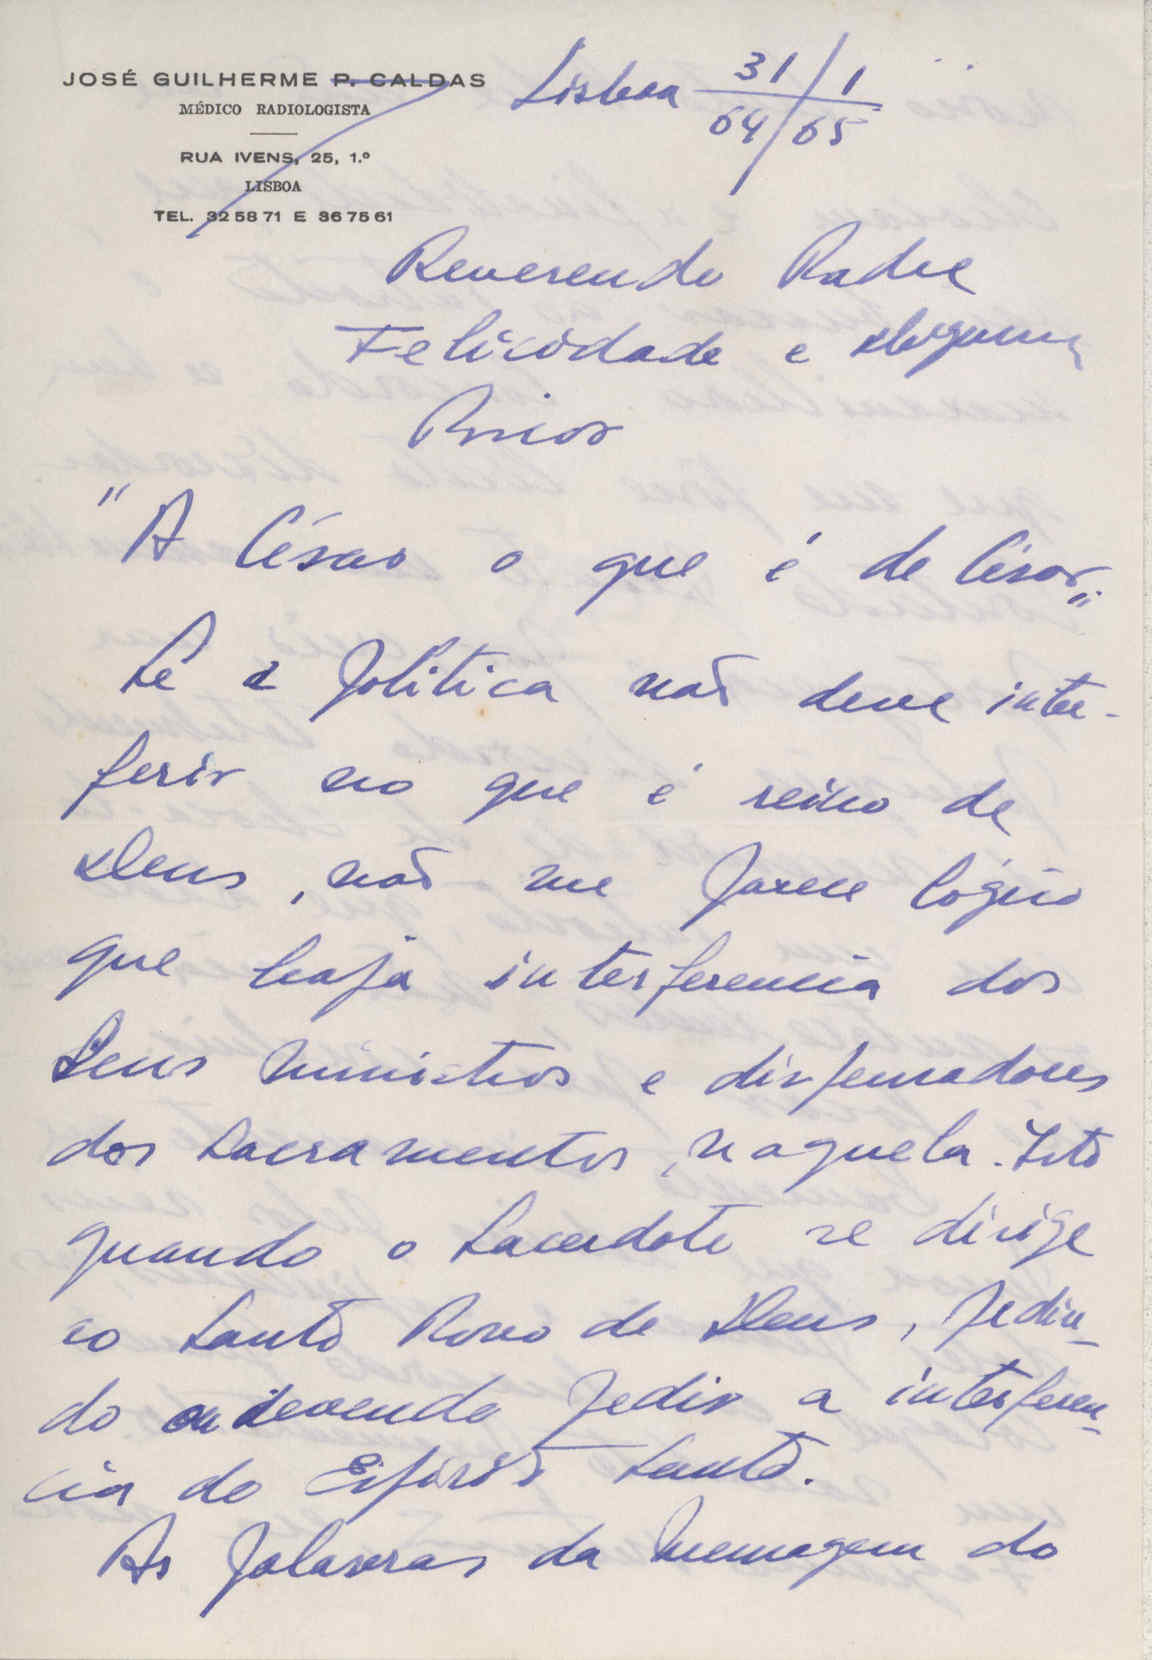 JOSÉ GUILHERME P. CALDAS
MÉDICO RADIOLOGISTA
RUA IVENS, 25, 1.º
LISBOA
TEL. 32 58 71 E 36 75 61
Lisboa 31/1
64/65
Reverendo Padre
Felicidade e
Prior
"A César o que é de César"
Se a politica não deve inter-
ferir no que é reino de
Deus, não me parece lógico
que haja interferencia dos
Seus ministros e dispensadores
dos Sacramentos, naquela. Isto
quando o Sacerdote se dirige
ao Santo Povo de Deus, pedin-
do ou devendo pedir a interferen-
cia do Espirito Santo.
As palavras da mensagem do